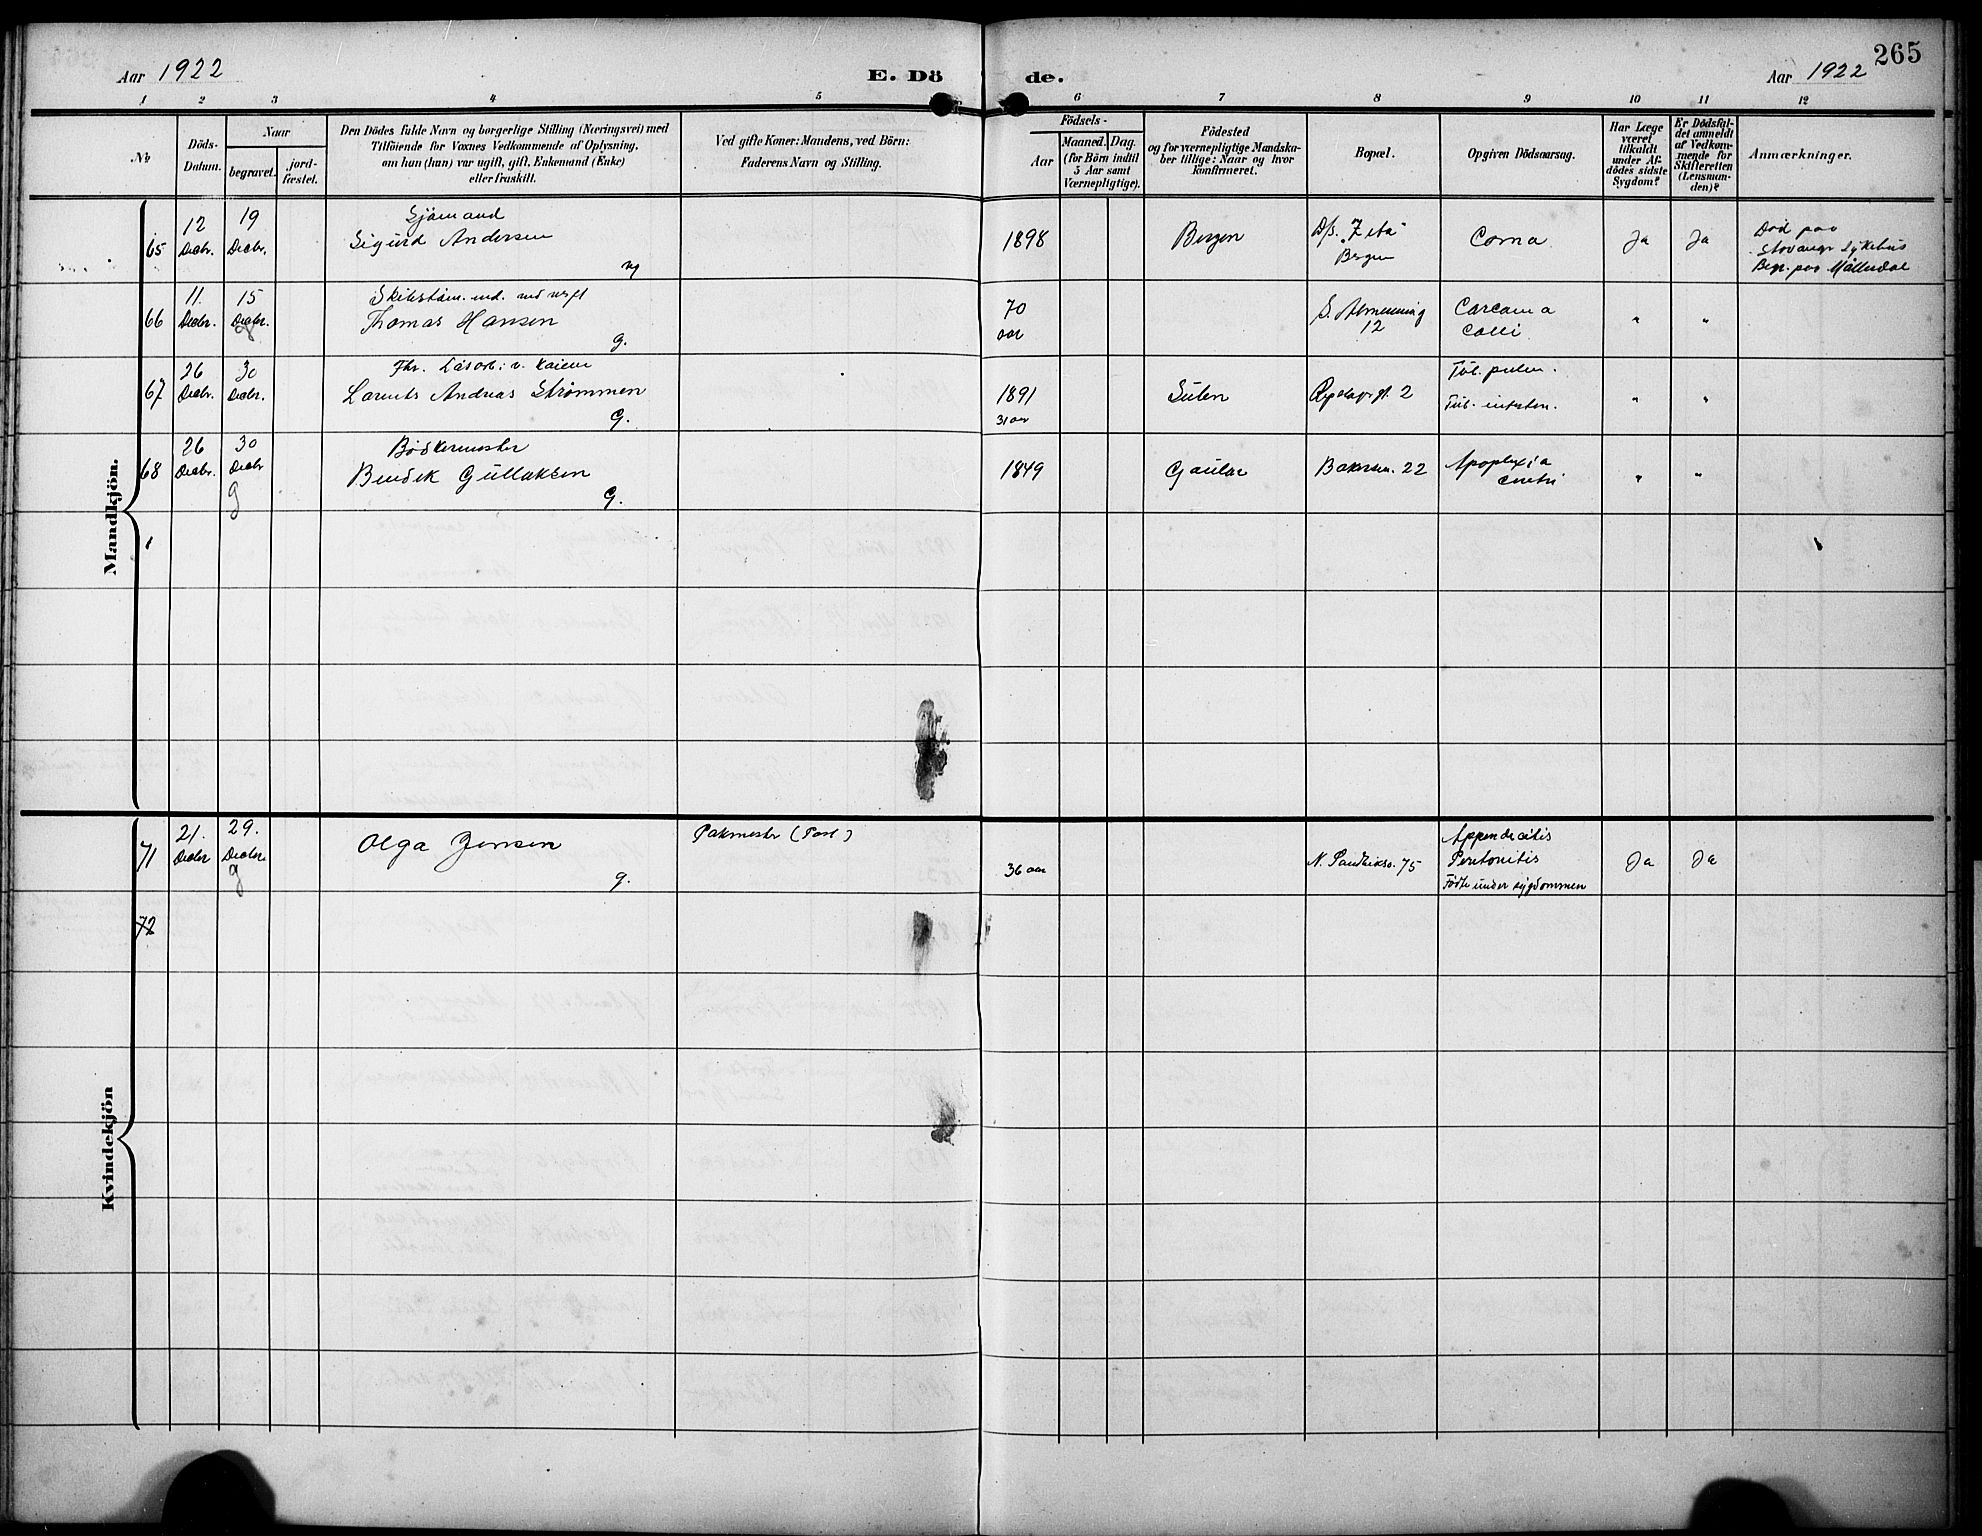 Aar 1922
E. Dö
de.
Aar 1922
265
1 2 3 4 5 6 7 8 9 10 11 12
Nr.
Döds-
Datum.
Naar
begravet.
jord-
fæstet.
Den Dödes fulde Navn og borgerlige Stilling (Næringsvei) med
Tilföiende for Voxnes Vedkommende af Oplysning,
om han (hun) var ugift, gift, Enkemand (Enke)
eller fraskilt.
Ved gifte Koner: Mandens, ved Börn:
Faderens Navn og Stilling.
Födsels-
Aar
Maaned.
Dag.
(for Börn indtil
5 Aar samt
Værnepligtige).
Födested
og for værnepligtige Mandska-
ber tillige: Naar og hvor
konfirmeret.
Bopæl.
Opgiven Dödsaarsag.
Har Læge
været
tilkaldt
under Af-
dödes sidste
Sygdom?
Er Dödsfal-
det anmeldt
af Vedkom-
mende for
Skifteretten
(Lensman-
den)?
Anmærkninger.
Mandkjön.
65
12 Decbr.
19 Decbr.
Sjömand
Sigurd Andersen
ug
1898
Bergen
D/s. "Zeta"
Bergen
Coma
Ja
Ja
Död paa
Stavanger Sykehus
Begr. paa Møllendal
66
11. Decbr.
15 Decbr.
g
Thomas Hansen
g.
70
aar
S. Almenning
12
Carcoma
Colli
"
"
67
26 Decbr.
30 Decbr.
Laurits Andreas Strømmen
G.
1891
31 aar
Sulen
2
Tub. pulm.
Tub. intestin.
"
"
68
26 Decbr.
30 Decbr
g
Bödkermester
Bendik Gullaksen
G.
1849
Gaular
22
Apoplexia
cerebri
"
"
Kvindekjön
71
21. Decbr
29. Decbr.
g
Olga Jensen
g.
Pakmester (Post)
36 aar
75
Appendicitis
Peritonitis
Födte under sygdommen
Ja
Ja
72